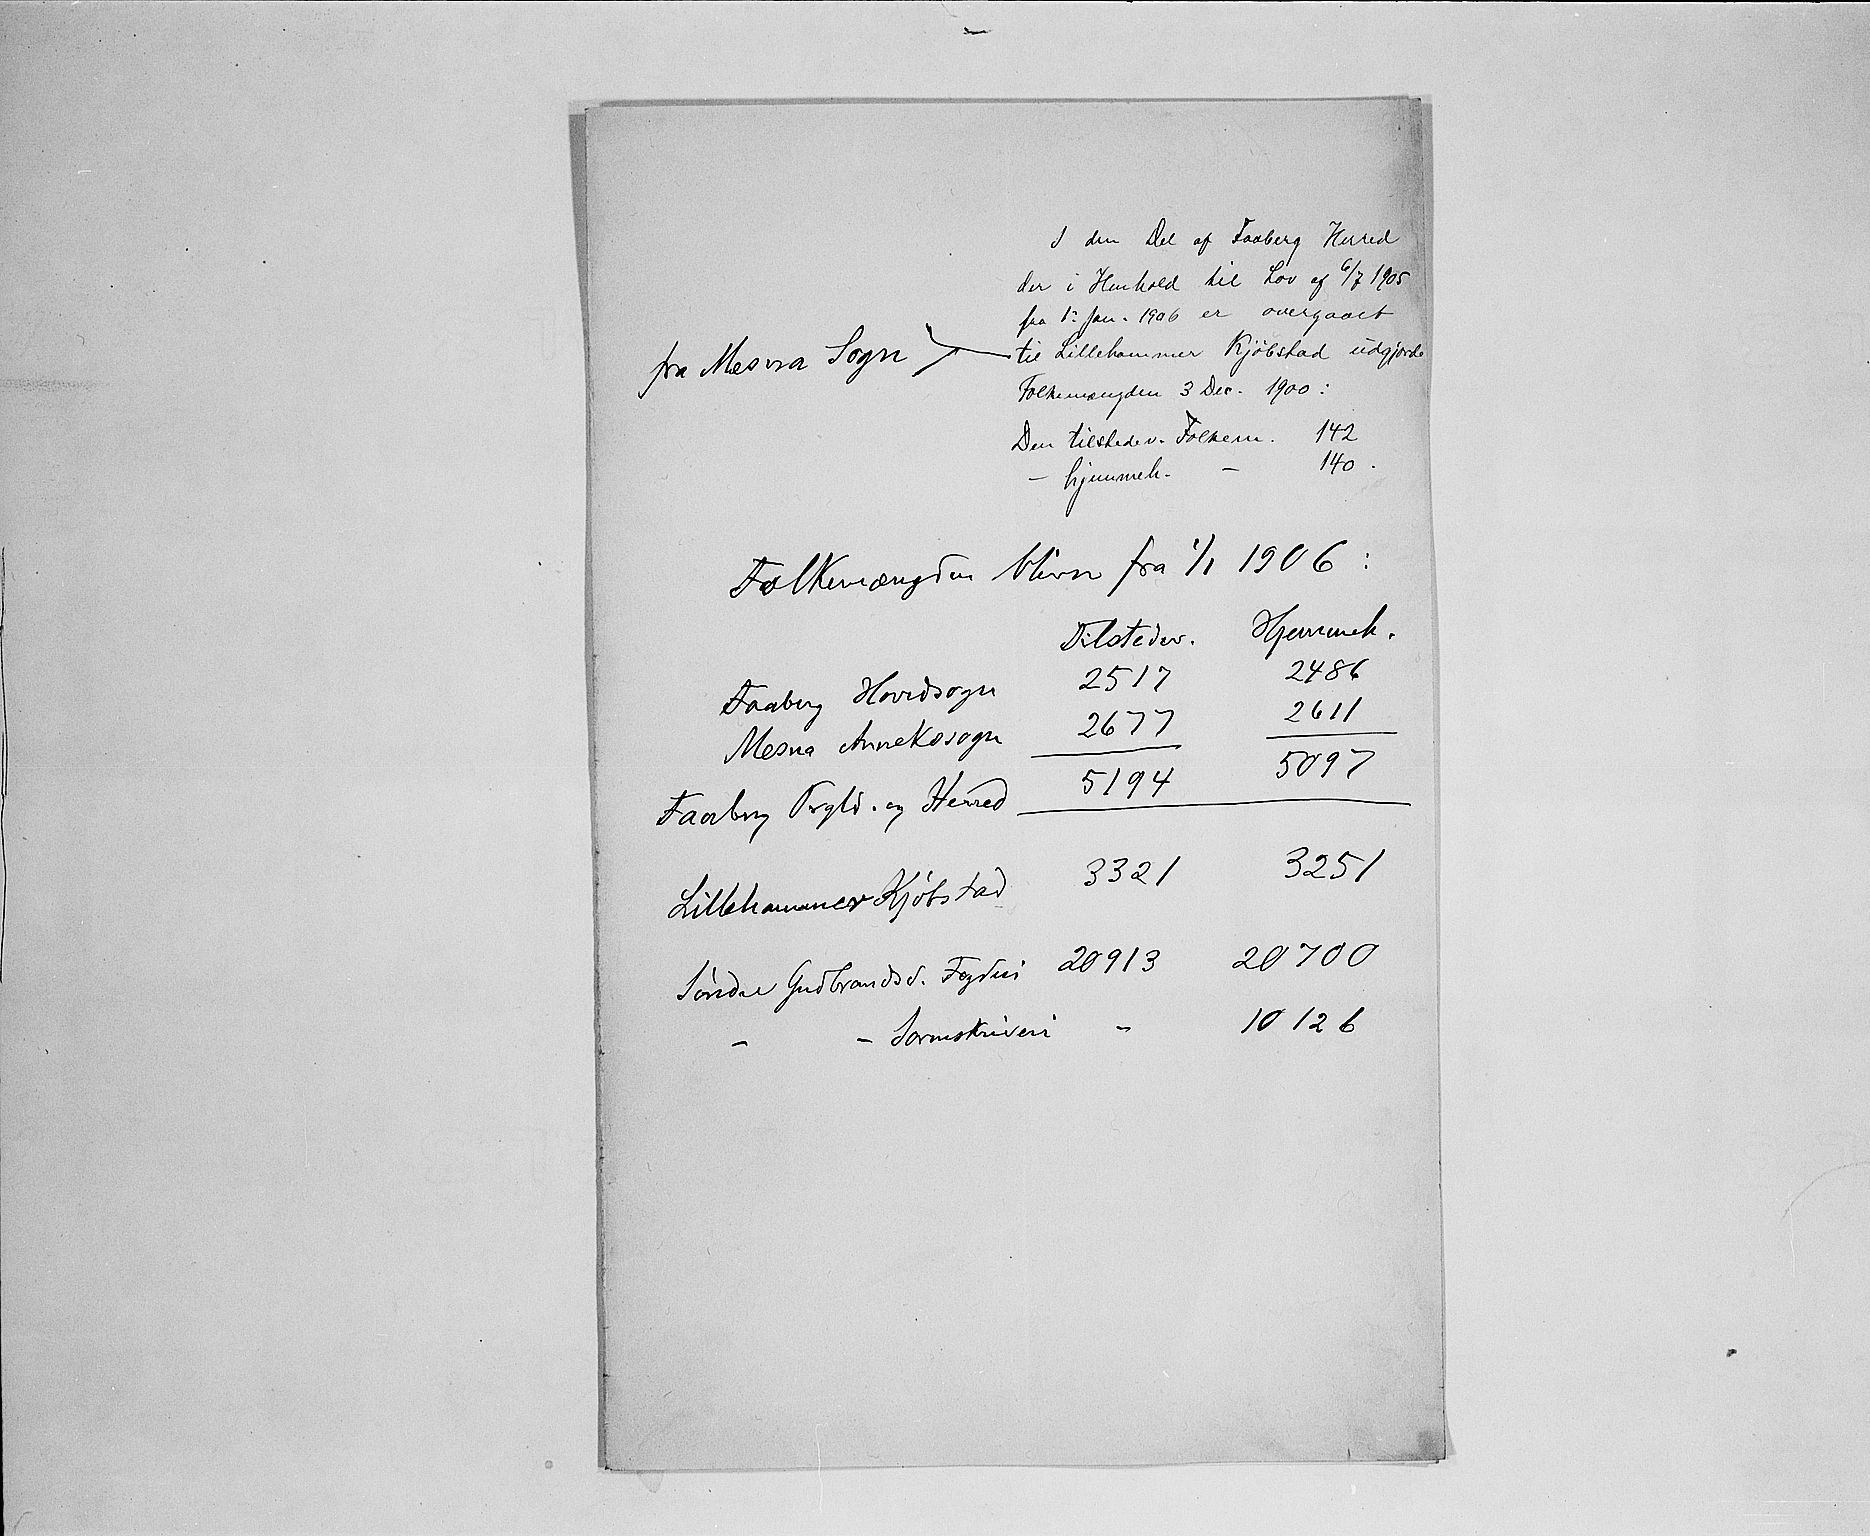 I den Del af Faaberg Herred
der i Henhold til Lov af 6/7 1905
fra 1. Jan. 1906 er overgaaet
fra Mesna Sogn } til Lillehammer Kjöbstad udgjorde
Folkemængden 3 Dec. 1900:
Den tilstedev. Folkem. 142
- hjemmeh. - 140.
Folkemængden bliver fra 1/1 1906:
Tilstedev. Hjemmeh.
Faaberg Hovedsogn 2517 2486
Mesna Annekssogn 2677 2611
Faaberg Prgld. og Herred 5194 5097
Lillehammer Kjöbstad 3321 3251
Söndre Gudbrandsd. Fogderi 20913 20700
- - Sorenskriveri - 10126